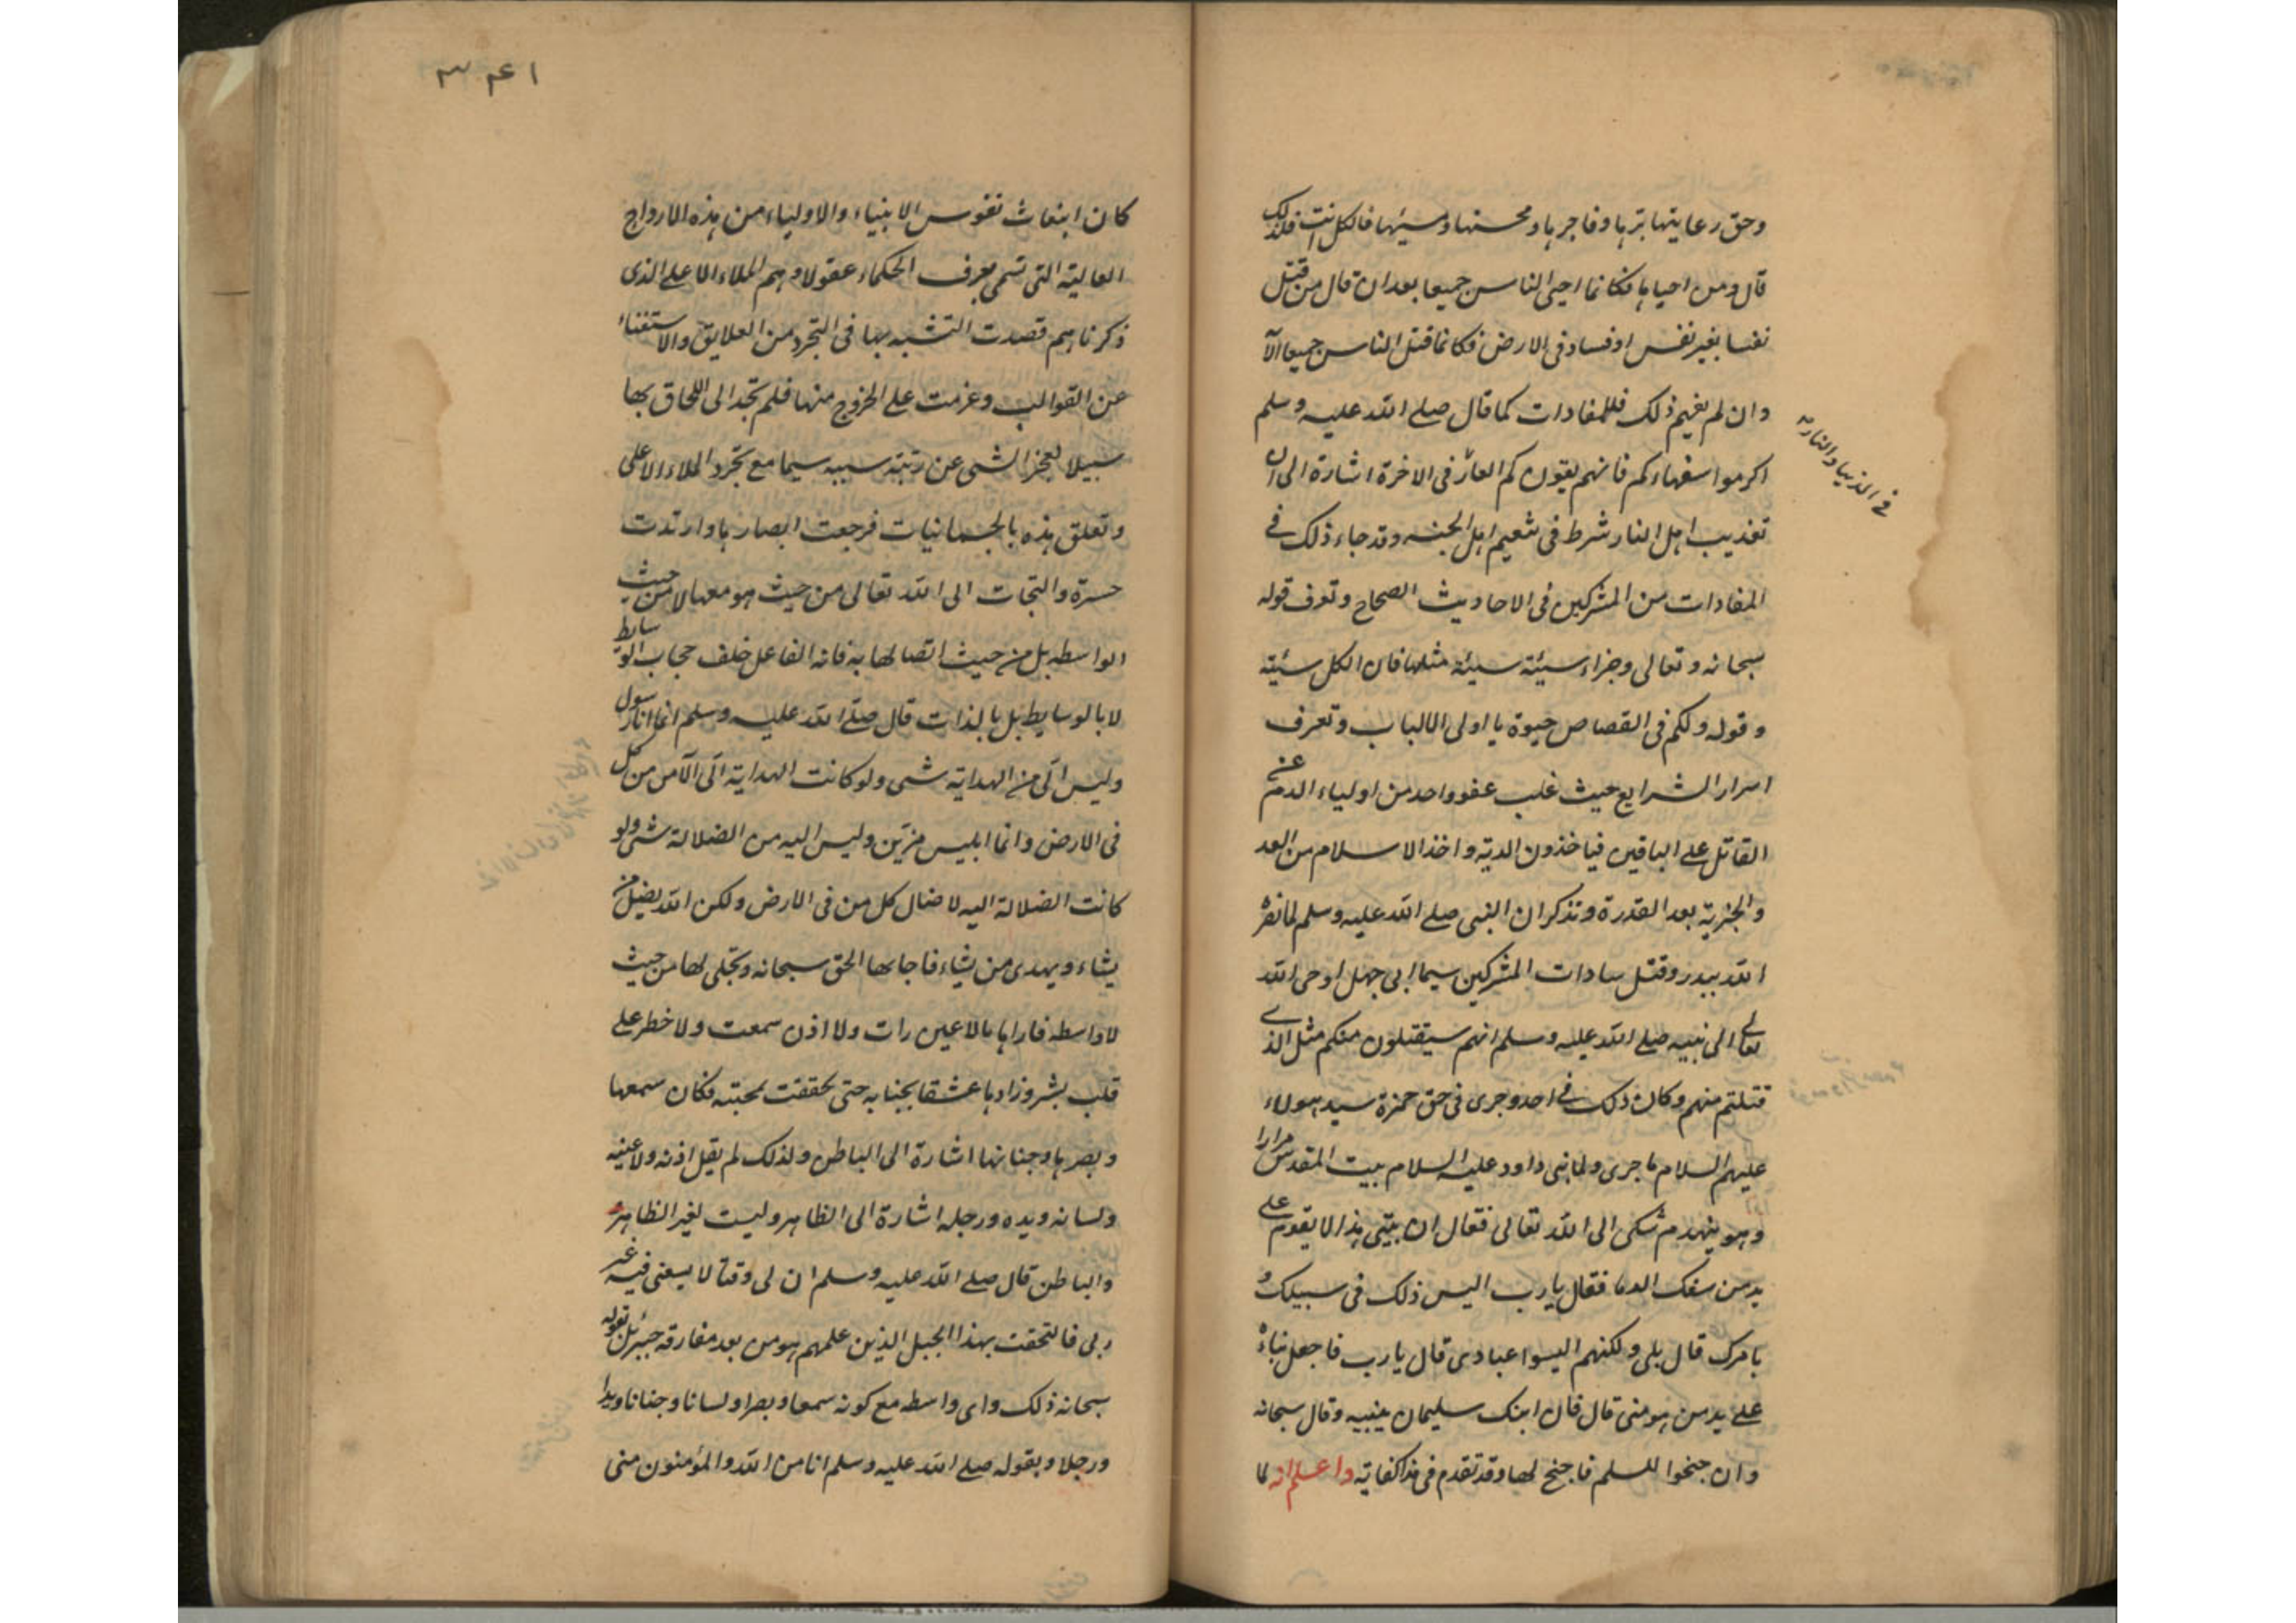 وحق رعايتها برها وفاجرها ومحسنها ومسيئها فالكل انت فلذلك
قال ومن احياها فكانما احيى الناس جميعا بعد ان قال من قتل
نفسا بغير نفس او فساد فى الارض فكانما قتل الناس جميعا الآ
وان لم يفهم ذلك فللمفادات كما قال صلى الله عليه وسلم
اكرموا سفهاءكم فانهم يقونكم العار فى الاخرة اشارة الى ان
فى الدنيا والنار
تعذيب اهل النار شرط فى تنعيم اهل الجنه وقد جاء ذلك فى
المفادات من المشركين فى الاحاديث الصحاح وتعرف قوله
سبحانه وتعالى وجزاء سيئة سيئة مثلها فان الكل سيئة
وقوله ولكم فى القصاص حيوة يا اولى الالباب وتعرف
اسرار الشرايع حيث غلب عفو واحد من اولياء الدم عن
القاتل على الباقين فياخذون الدية واخذ الاسلام من العد
والجزية بعد القدرة وتذكر ان النبى صلى الله عليه وسلم لما نصره
الله ببدر وقتل سادات المشركين سيما ابى جهل اوحى الله
تعالى الى نبيه صلى الله عليه وسلم انهم سيقتلون منكم مثل الذى
قتلتم منهم وكان ذلك فى احد وجرى فى حق حمزة سيد هولاء
عليهم السلام ما جرى ولما بنى داود عليه السلام بيت المقدس مرارا
وهو ينهدم شكى الى الله تعالى فقال ان بيتى هذا لا يقوم على
يد من سفك الدما فقال يارب اليس ذلك فى سبيلك و
بامرك قال بلى ولكنهم اليسوا عبادى قال يارب فاجعل بناءه
على يد من هو منى قال فان ابنك سليمان يبنيه وقال سبحانه
وان جنحوا للسلم فاجنح لها وقد تقدم فى هذا كفاية واعلم انه لما
٣ ٤ ١
كان انبعاث نفوس الانبياء والاولياء من هذه الارواح
العالية التى تسمى بعرف الحكماء عقولا وهم الملاء الاعلى الذى
ذكرناهم قصدت التشبه بها فى التجرد من العلايق والاستغناء
عن القوالب وعزمت على الخروج منها فلم تجد الى اللحاق بها
سبيلا لعجز الشى عن رتبة سببه سيما مع تجرد الملاء الاعلى
وتعلق هذه بالجسمانيات فرجعت ابصارها وارتدت
حسرة والتجات الى الله تعالى من حيث هو معها لا من حيث
الواسطه بل من حيث اتصالها به فانه الفاعل خلف حجاب الوسايط
لا بالوسايط بل بالذات قال صلى الله عليه وسلم انما انا رسول
وليس الى من الهداية شى ولو كانت الهداية الى لآمن من كل
فى الارض وانما ابليس مزين وليس اليه من الضلالة شى ولو
كانت الضلالة اليه لاضال كل من فى الارض ولكن الله يضل من
يشاء ويهدى من يشاء فاجابها الحق سبحانه وتجلى لها من حيث
لا واسطه فاراها ما لا عين رات ولا اذن سمعت ولا خطر على
قلب بشر وزادها عشقا بجنابه حتى تحققت بمحبته فكان سمعها
وبصرها وجنانها اشارة الى الباطن ولذلك لم يقل اذنه ولا عينه
ولسانه ويده ورجله اشارة الى الظاهر وليست لغير الظاهر
والباطن قال صلى الله عليه وسلم ان لى وقتا لا يسعنى فيه غير
ربى فالتحقت بهذا الجبل الذين علمهم هو من بعد مفارقة جبرئيل بقوله
سبحانه ذلك واى واسطه مع كونه سمعا وبصرا ولسانا وجنانا ويدا
ورجلا وبقوله صلى الله عليه وسلم انا من الله والمؤمنون منى